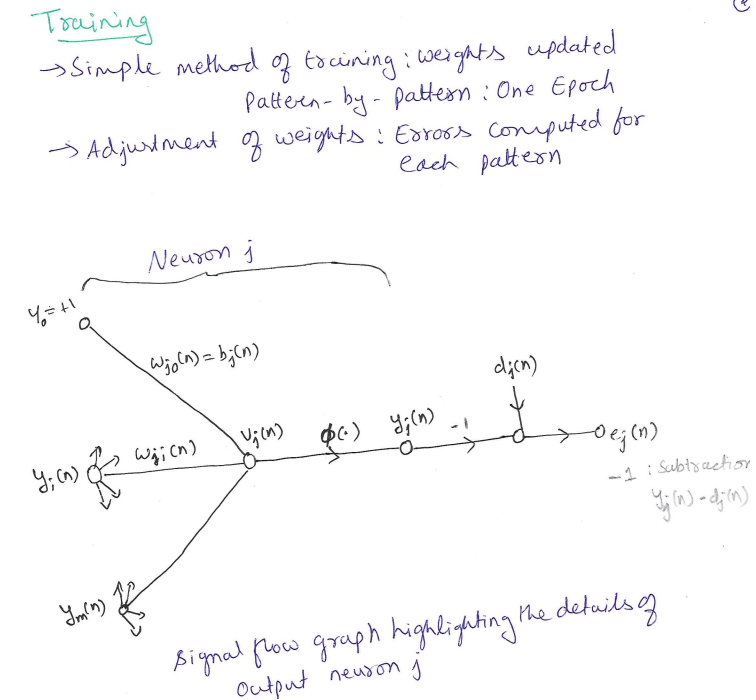 Training
→ Simple method of training : weights updated
Pattern - by - pattern : One Epoch
→ Adjustment of weights : Errors computed for
each pattern
Neuron j
y₀ = +1
wⱼ₀(n) = bⱼ(n)
dⱼ(n)
yᵢ(n) wⱼᵢ(n) vⱼ(n) ϕ(.) yⱼ(n) -1 eⱼ(n)
-1 : Subtraction
yⱼ(n) - dⱼ(n)
yₘ(n)
Signal flow graph highlighting the details of
Output neuron j